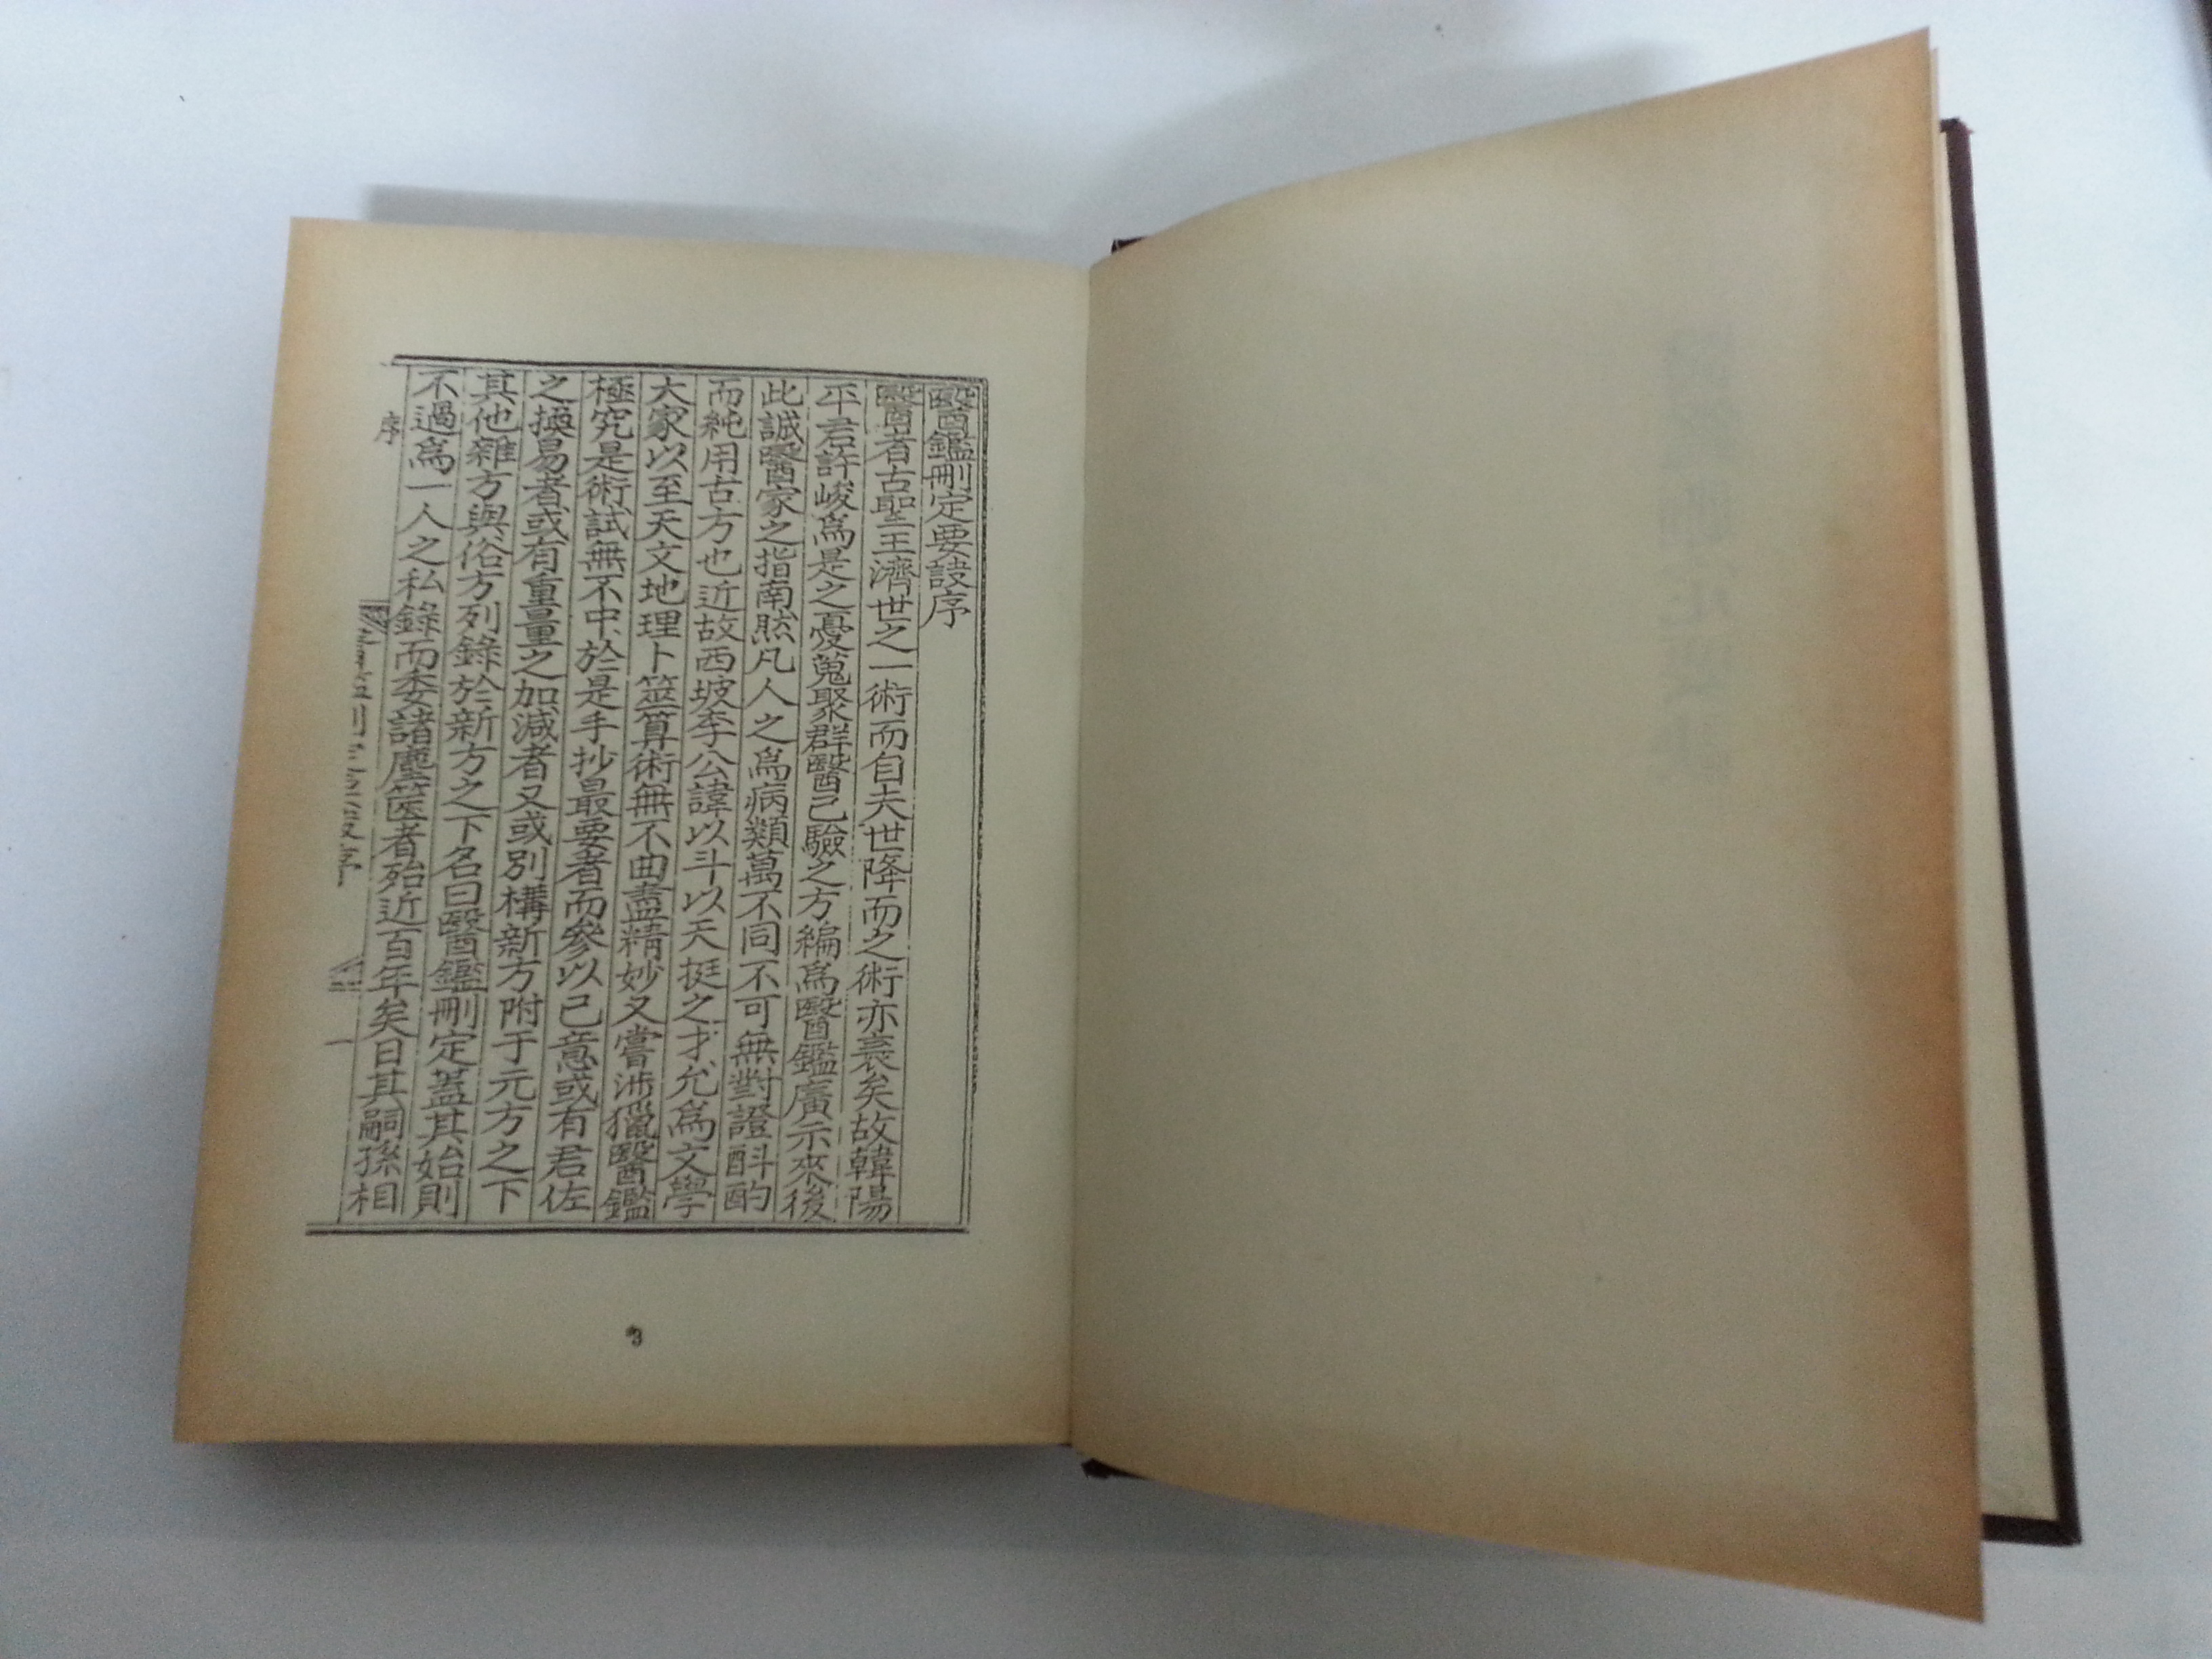 醫鑑刪定要訣序
醫者古聖王濟世之一術而自夫世降而之術亦衰矣故韓陽
平君許峻爲是之憂蒐聚群醫已驗之方編爲醫鑑廣示來後
此誠醫家之指南然凡人之爲病類萬不同不可無對證斟酌
而純用古方也近故西坡李公諱以斗以天挺之才允爲文學
大家以至天文地理卜筮算術無不曲盡精妙又嘗涉獵醫鑑
極究是術試無不中於是手抄最要者而參以己意或有君佐
之換易者或有重量之加減者又或別構新方附于元方之下
其他雜方與俗方列錄於新方之下名曰醫鑑刪定蓋其始則
不過爲一人之私錄而委諸塵篋者殆近百年矣日其嗣孫相
序
一
3